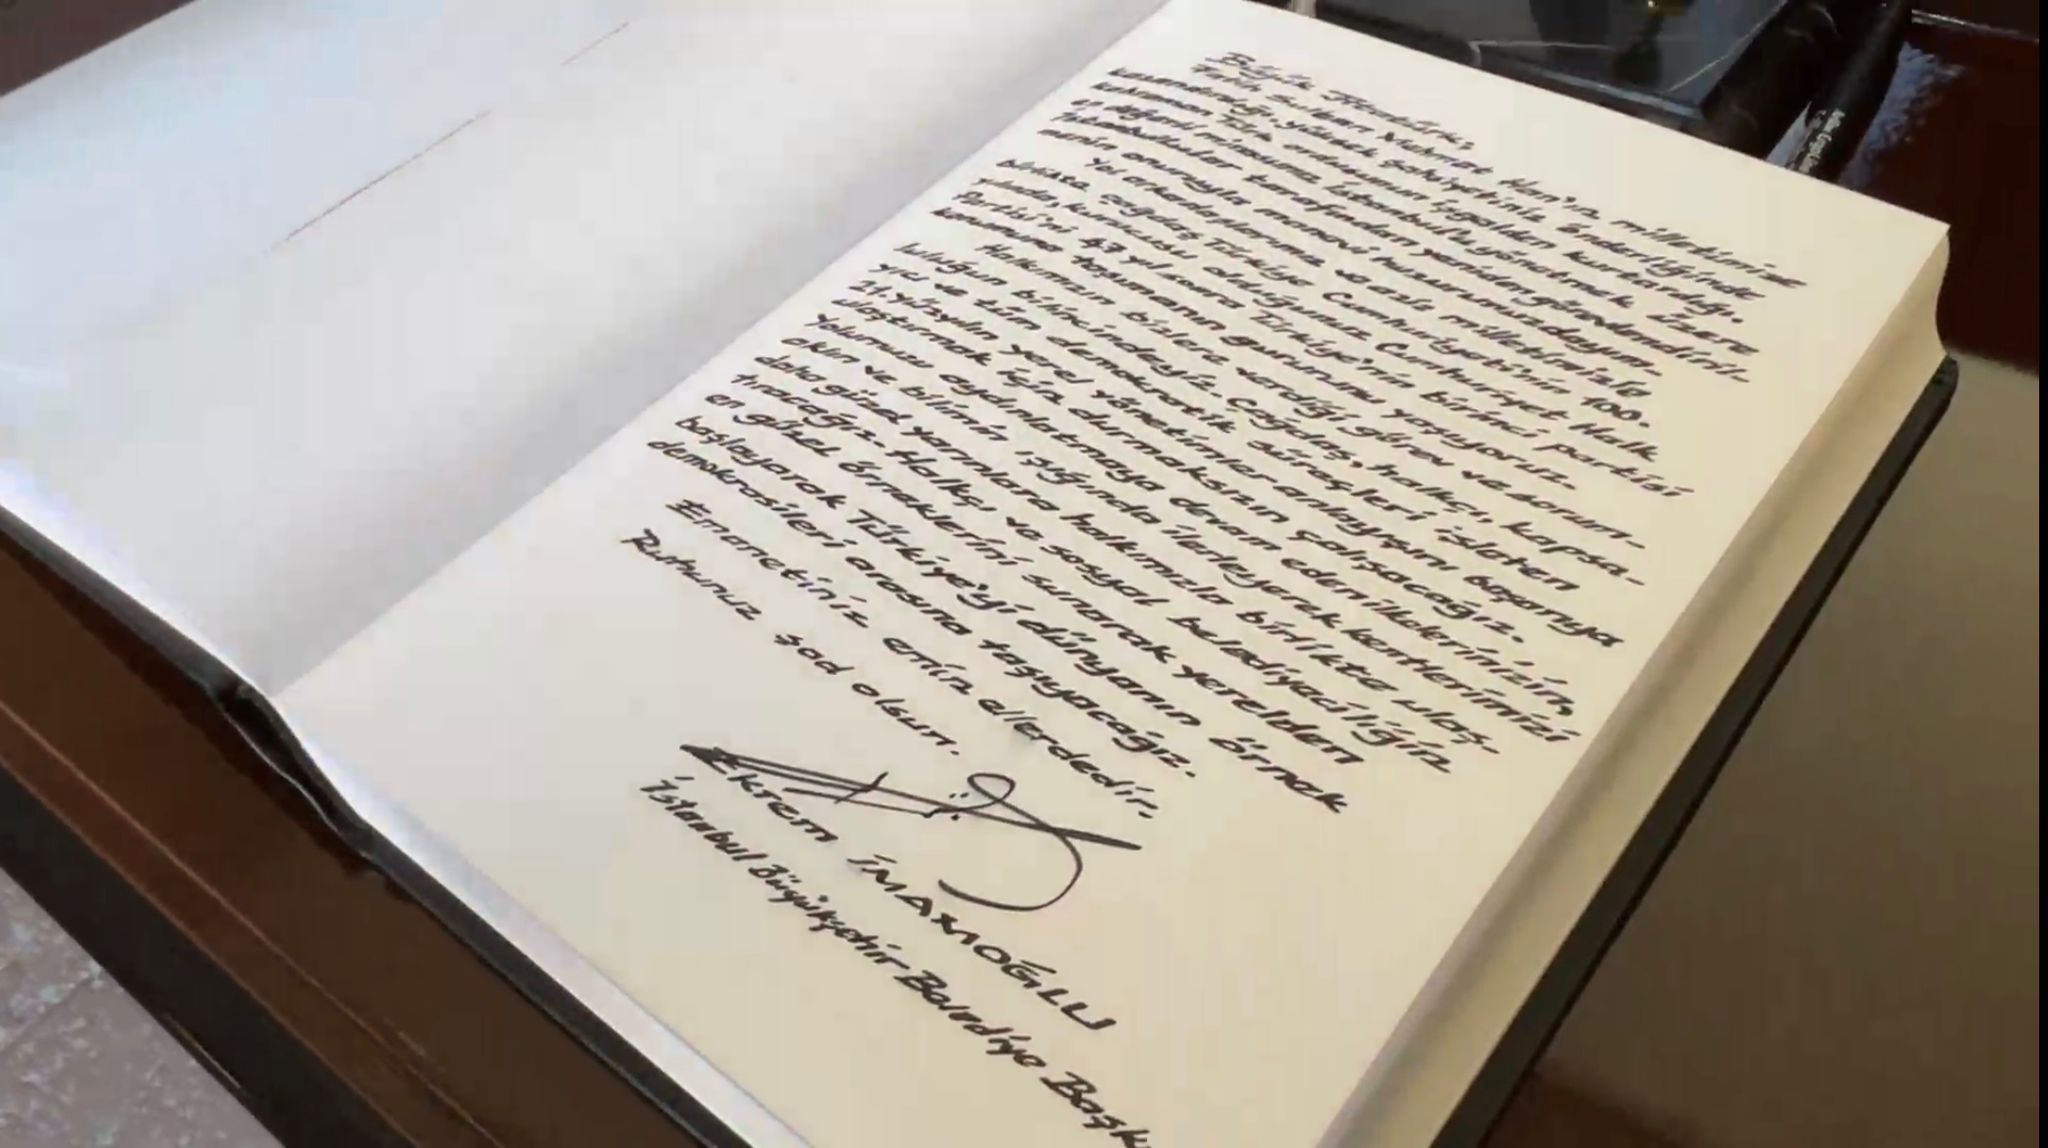 Büyük Atatürk,
Fatih Sultan Mehmet Han'ın milletimize
kazandırdığı, yüksek şahsiyetiniz önderliğinde
kahraman Türk ordusunun işgalden kurtardığı,
en değerli mirasımız İstanbul'u yönetmek üzere
İstanbullular tarafından yeniden görevlendiril-
menin onuruyla manevi huzurunuzdayım.
Yol arkadaşlarımız ve aziz milletimizle
birlikte, çağdaş Türkiye Cumhuriyeti'nin 100.
yılında, kurucusu olduğunuz Cumhuriyet Halk
Partisi'ni 47 yıl sonra Türkiye'nin birinci partisi
konumuna taşımanın gururunu yaşıyoruz.
Halkımızın bizlere verdiği görev ve sorum-
luluğun bilincindeyiz. Çağdaş, halkçı, kapsa-
yıcı ve tüm demokratik süreçleri işleten
21. yüzyılın yerel yönetimler anlayışını başarıya
ulaştırmak için durmaksızın çalışacağız.
Yolumuzu aydınlatmaya devam eden ilkelerinizin,
aklın ve bilimin ışığında ilerleyerek kentlerimizi
daha güzel yarınlara halkımızla birlikte ulaş-
tıracağız. Halkçı ve sosyal belediyeciliğin
en güzel örneklerini sunarak yerelden
başlayarak Türkiye'yi dünyanın örnek
demokrasileri arasına taşıyacağız.
Emanetiniz emin ellerdedir.
Ruhunuz şad olsun.
Ekrem İMAMOĞLU
İstanbul Büyükşehir Belediye Başk